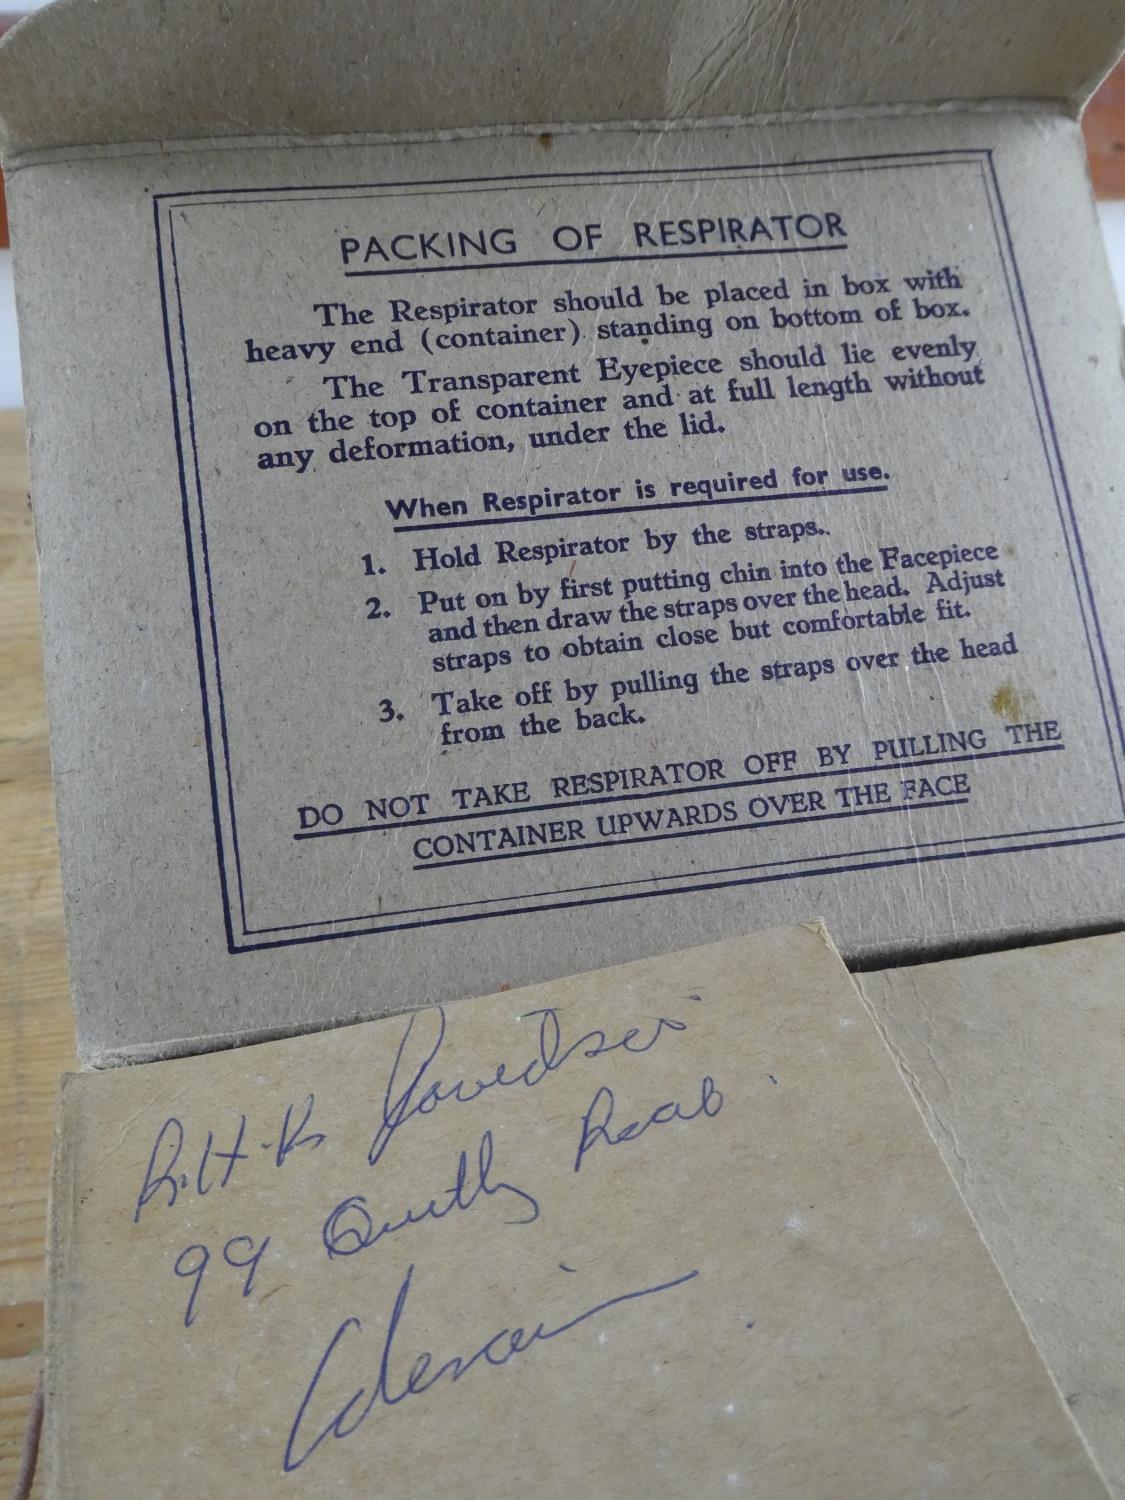 PACKING OF RESPIRATOR
The Respirator should be placed in box with
heavy end (container) standing on bottom of box.
The Transparent Eyepiece should lie evenly
on the top of container and at full length without
any deformation, under the lid.
When Respirator is required for use.
1. Hold Respirator by the straps.
2. Put on by first putting chin into the Facepiece
and then draw the straps over the head. Adjust
straps to obtain close but comfortable fit.
3. Take off by pulling the straps over the head
from the back.
DO NOT TAKE RESPIRATOR OFF BY PULLING THE
CONTAINER UPWARDS OVER THE FACE
99